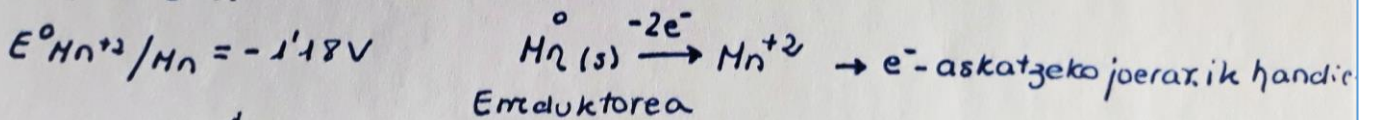 E⁰Mn⁺²/Mn = -1'18V   M⁰n (s) -2e⁻ → Mn⁺² → e⁻-askatzeko joerarik handie
Erreduktorea